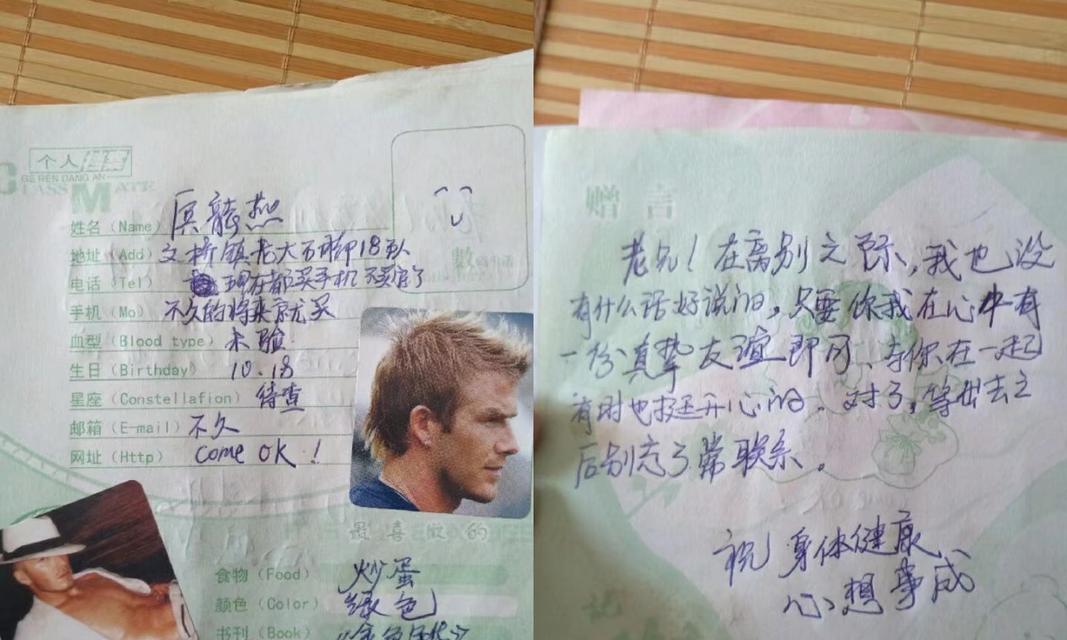 个人档案
GE REN DANG AN
CLASS MATE
姓名（Name）
地址（Add）文桥镇老大石脚18队
电话（Tel）现在都买手机 不买它了
手机（Mo）不久的将来就买
血型（Blood type）未验
生日（Birthday）10.18
星座（Constellafion）待查
邮箱（E-mail）不久
网址（Http）come OK！
最喜欢的
食物（Food）炒蛋
颜色（Color）绿色
书刊（Book）
赠言
老兄！在离别之际，我也没
有什么话好说的，只要你我在心中有
一份真挚友谊即可、与你在一起
有时也挺开心的。对了，等出去之
后别忘了常联系。
祝 身体健康
心想事成